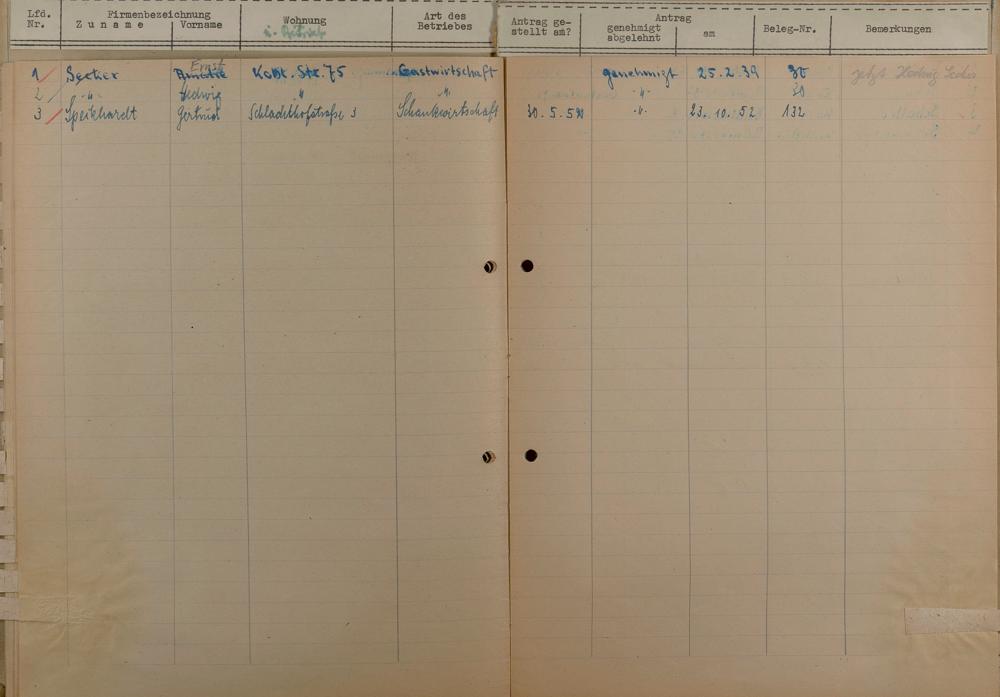 Lfd. Nr. Firmenbezeichnung Zuname Vorname Wohnung u. Betrieb Art des Betriebes Antrag ge- stellt am? Antrag genehmigt abgelehnt am Beleg-Nr. Bemerkungen
1 Secker Ernst Kobl. Str. 75 Gastwirtschaft genehmigt 25.2.39 30 jetzt Hedwig Secker
2 -"- Hedwig " " -"- 30
3 Speikhardt Gertrud Schlachthofstraße 3 Schankwirtschaft 30.5.51 -"- 23.10.52 132